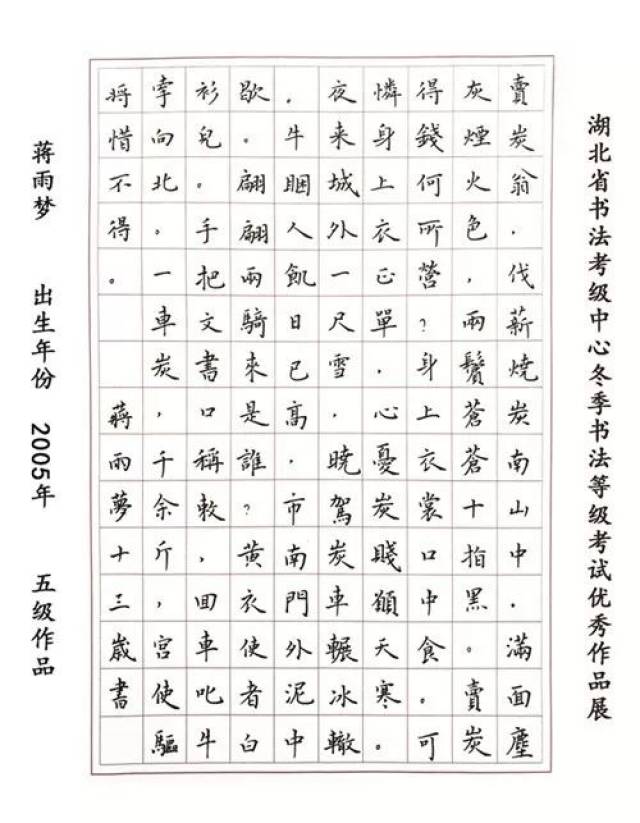 湖北省书法考级中心冬季书法等级考试优秀作品展
賣炭翁，伐薪燒炭南山中，滿面塵
灰煙火色，兩鬢蒼蒼十指黑。賣炭
得錢何所營？身上衣裳口中食。可
憐身上衣正單，心憂炭賤願天寒。
夜来城外一尺雪，曉駕炭車輾冰轍
，牛睏人飢日已高，市南門外泥中
歇。翩翩兩騎來是誰？黄衣使者白
衫兒。手把文書口稱敕，回車叱牛
牽向北。一車炭，千余斤，宮使驅
將惜不得。
蔣雨夢十三歲書
蒋雨梦 出生年份 2005年 五级作品